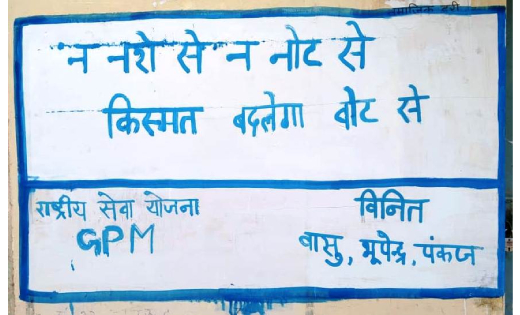 न नशे से न नोट से
किस्मत बदलेगा वोट से
राष्ट्रीय सेवा योजना
GPM
विनित
वासु, भूपेन्द्र, पंकज